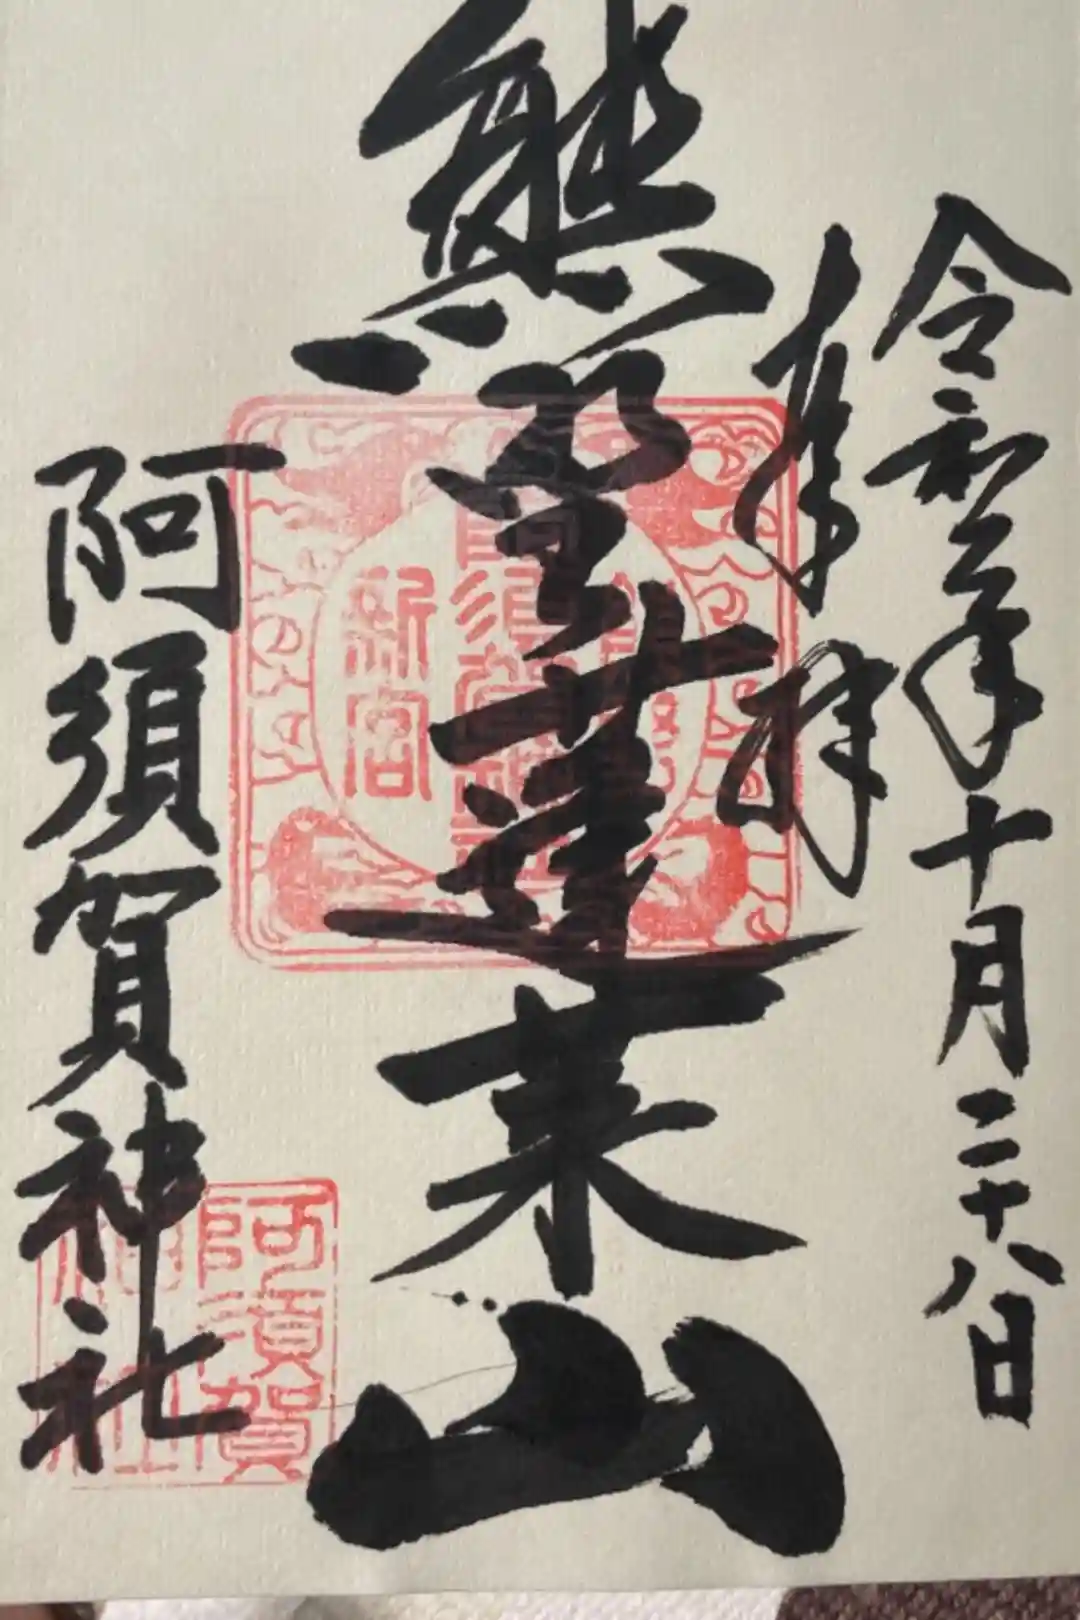 令和三年十月二十八日
奉拝
熊野蓬莱山
阿須賀神社
新宮
阿須賀
神社